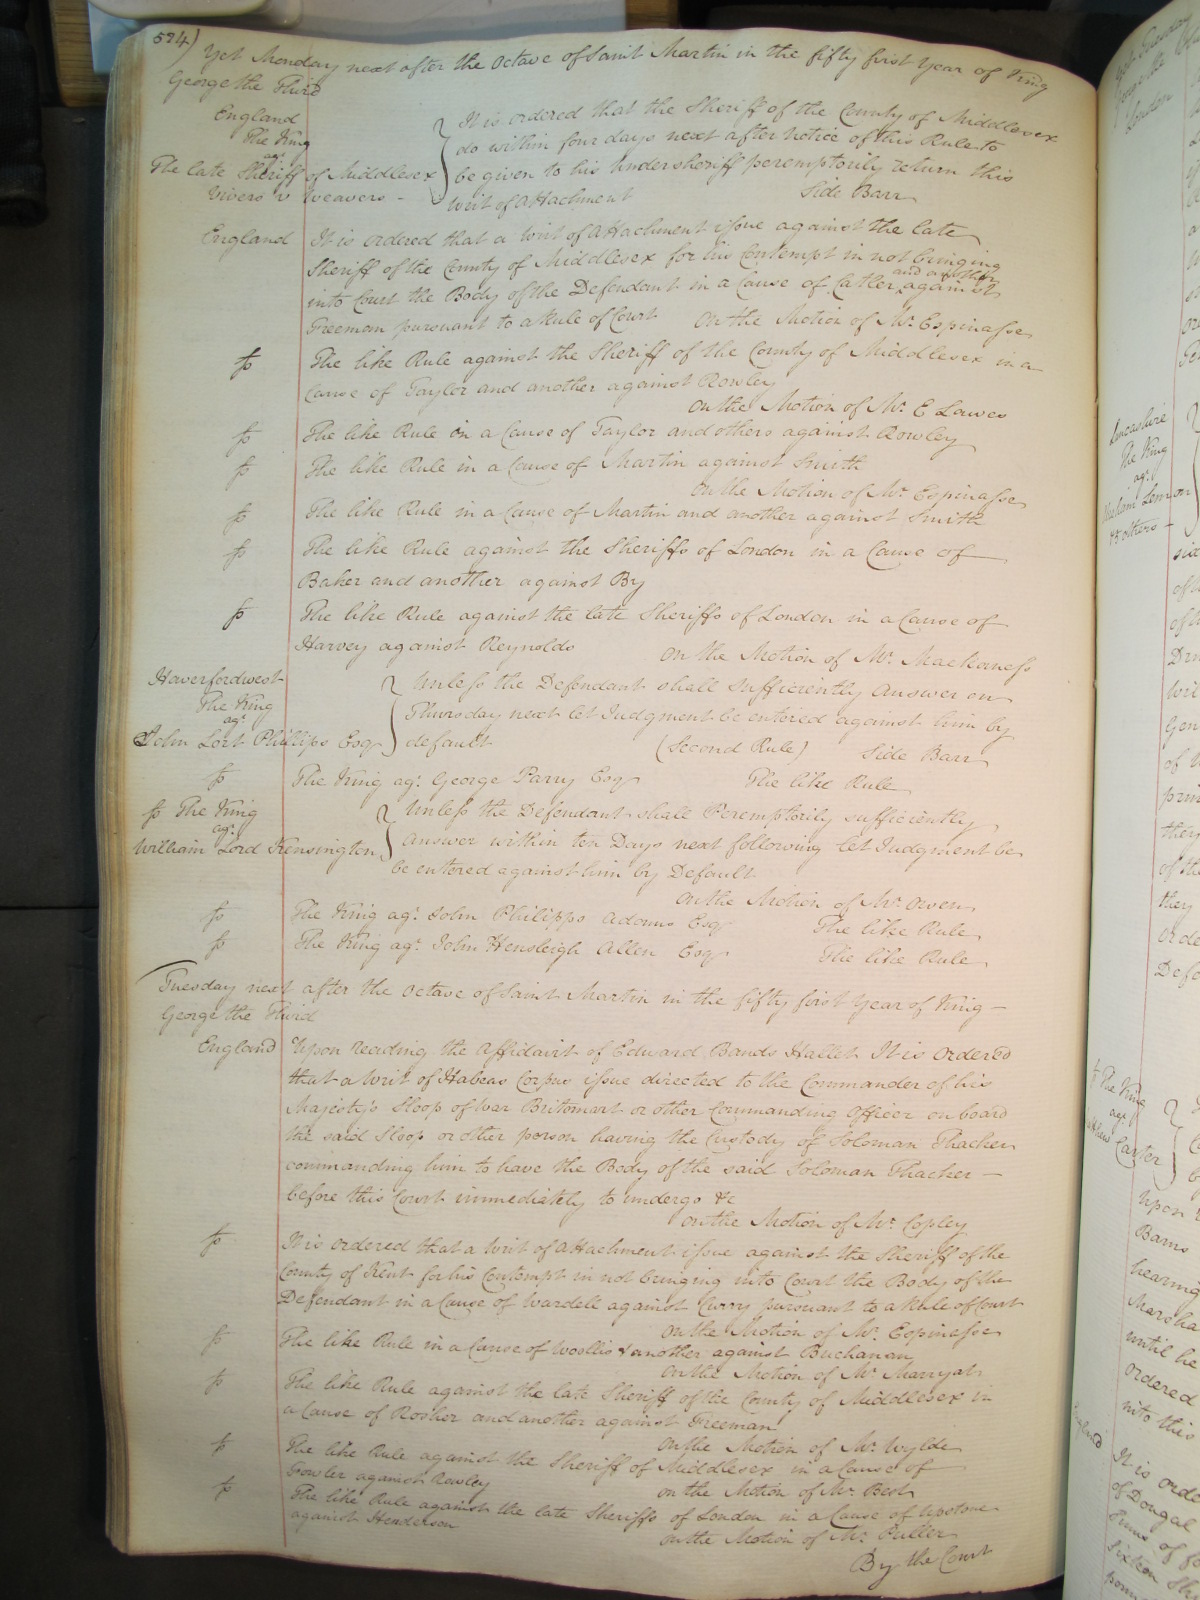 524)
Yet Monday next after the Octave of Saint Martin in the fifty first Year of King
George the Third
England
The King
agt
The late Sheriff of Middlesex
Vivers v Weavers -
It is ordered that the Sheriff of the County of Middlesex
do within four days next after notice of this Rule to
be given to his Undersheriff peremptorily return this
Writ of Attachment Side Barr
England It is ordered that a Writ of Attachment issue against the late
Sheriff of the County of Middlesex for his Contempt in not bringing
and another
into Court the Body of the Defendant in a Cause of Catler against
Freeman pursuant to a Rule of Court On the Motion of Mr. Espinasse
The like Rule against the Sheriff of the County of Middlesex in a
Cause of Taylor and another against Rowley
on the Motion of Mr. E Lawes
The like Rule in a Cause of Taylor and others against Rowley
The like Rule in a Cause of Martin against Smith
On the Motion of Mr. Espinasse
The like Rule in a Cause of Martin and another against Smith
The like Rule against the Sheriffs of London in a Cause of
Baker and another against By
The like Rule against the late Sheriffs of London in a Cause of
Harvey against Reynolds On the Motion of Mr. Mackaness
Haverfordwest
The King
agt
John Lort Phillips Esqr
Unless the Defendant shall sufficiently Answer on
Thursday next let Judgment be entered against him by
default (Second Rule) Side Barr
The King agt. George Parry Esqr The like Rule
The King
agt.
William Lord Kensington
Unless the Defendant shall Peremptorily sufficiently
Answer within ten Days next following let Judgment be
be entered against him by Default
On the Motion of Mr. Owen
The King agt. John Philipps Adams Esqr The like Rule
The King agt. John Hensleigh Allen Esqr The like Rule
Tuesday next after the Octave of Saint Martin in the fifty first Year of King -
George the Third
England Upon reading the Affidavit of Edward Bands Hallet It is Ordered
that a Writ of Habeas Corpus issue directed to the Commander of his
Majesty's Sloop of War Britomart or other Commanding Officer on board
the said Sloop or other person having the Custody of Soloman Thacker
commanding him to have the Body of the said Soloman Thacker -
before this Court immediately to undergo &c
On the Motion of Mr. Copley
It is ordered that a Writ of Attachment issue against the Sheriff of the
County of Kent for his Contempt in not bringing into Court the Body of the
Defendant in a Cause of Wardell against Curry pursuant to a Rule of Court
On the Motion of Mr. Espinasse
The like Rule in a Cause of Woollis & another against Buchanan
On the Motion of Mr. Marryat
The like Rule against the late Sheriff of the County of Middlesex in
a Cause of Rosher and another against Freeman
On the Motion of Mr. Wylde
The like Rule against the Sheriff of Middlesex in a Cause of
Fowler against Rowley on the Motion of Mr. Best
The like Rule against the late Sheriffs of London in a Cause of Upstone
against Henderson on the Motion of Mr. Puller
By the Court